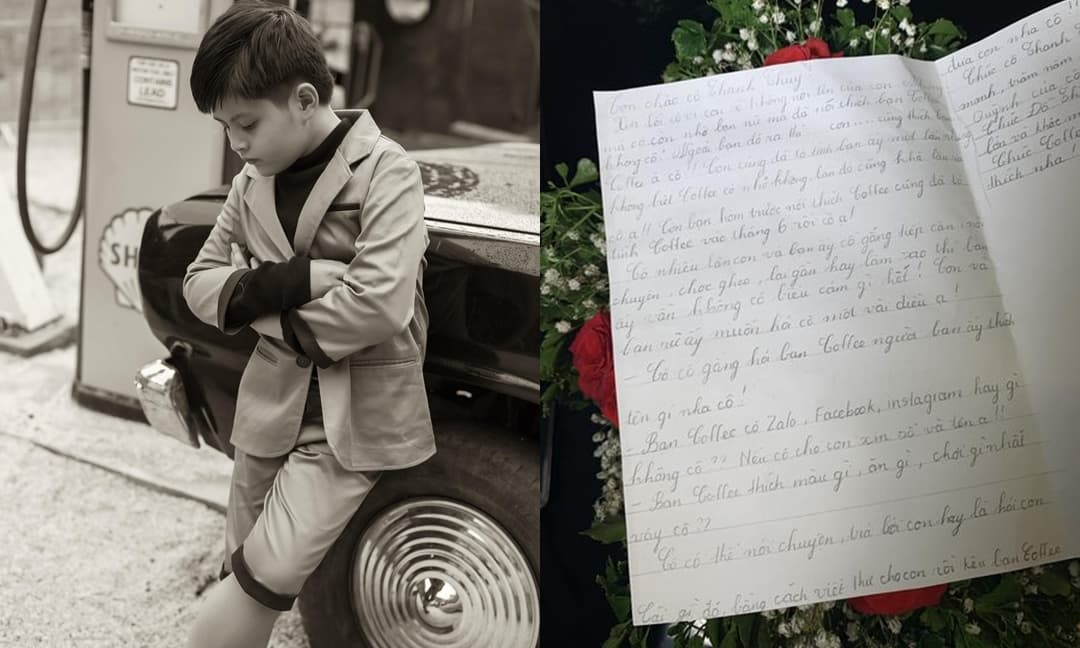 CONTAINS
LEAD
SH
Con chào cô Thanh Thuỷ
Xin lỗi cô vì con x không nói tên của con
mà có con nhỏ bạn nữ mà đã nói thích bạn Coffee
không cô? Ngoài bạn đó ra thì con.... cũng thích bạn
Coffee ạ cô!! Con cũng đã tỏ tình bạn ấy một lần rồi
không biết Coffee có nhớ không, lần đó cũng khá lâu rồi
cô ạ!! Còn bạn hôm trước nói thích Coffee cũng đã tỏ
tình Coffee vào tháng 6 rồi cô ạ!
Có nhiều lần con và bạn ấy cố gắng tiếp cận nói
chuyện, chọc ghẹo, lại gần hay làm sao thì bạn
ấy vẫn không có biểu cảm gì hết! Con và
bạn nữ ấy muốn hỏi cô một vài điều ạ!
- Cô cố gắng hỏi bạn Coffee người bạn ấy thích
tên gì nha cô!
- Bạn Coffee có Zalo, Facebook, instagram hay gì
không cô?? Nếu có cho con xin số và tên ạ!!
- Bạn Coffee thích màu gì, ăn gì, chơi gì nhất
vậy cô??
Cô có thể nói chuyện, trả lời con hay là hỏi con
cái gì đó, bằng cách viết thư cho con rồi kêu bạn Coffee
đưa con nha cô!!
Chúc cô Thanh
mạnh, trăm năm
Quỳnh của cô
Chúc Đô - Sh
lớn và khác m
Chúc Coffee
thích nha!